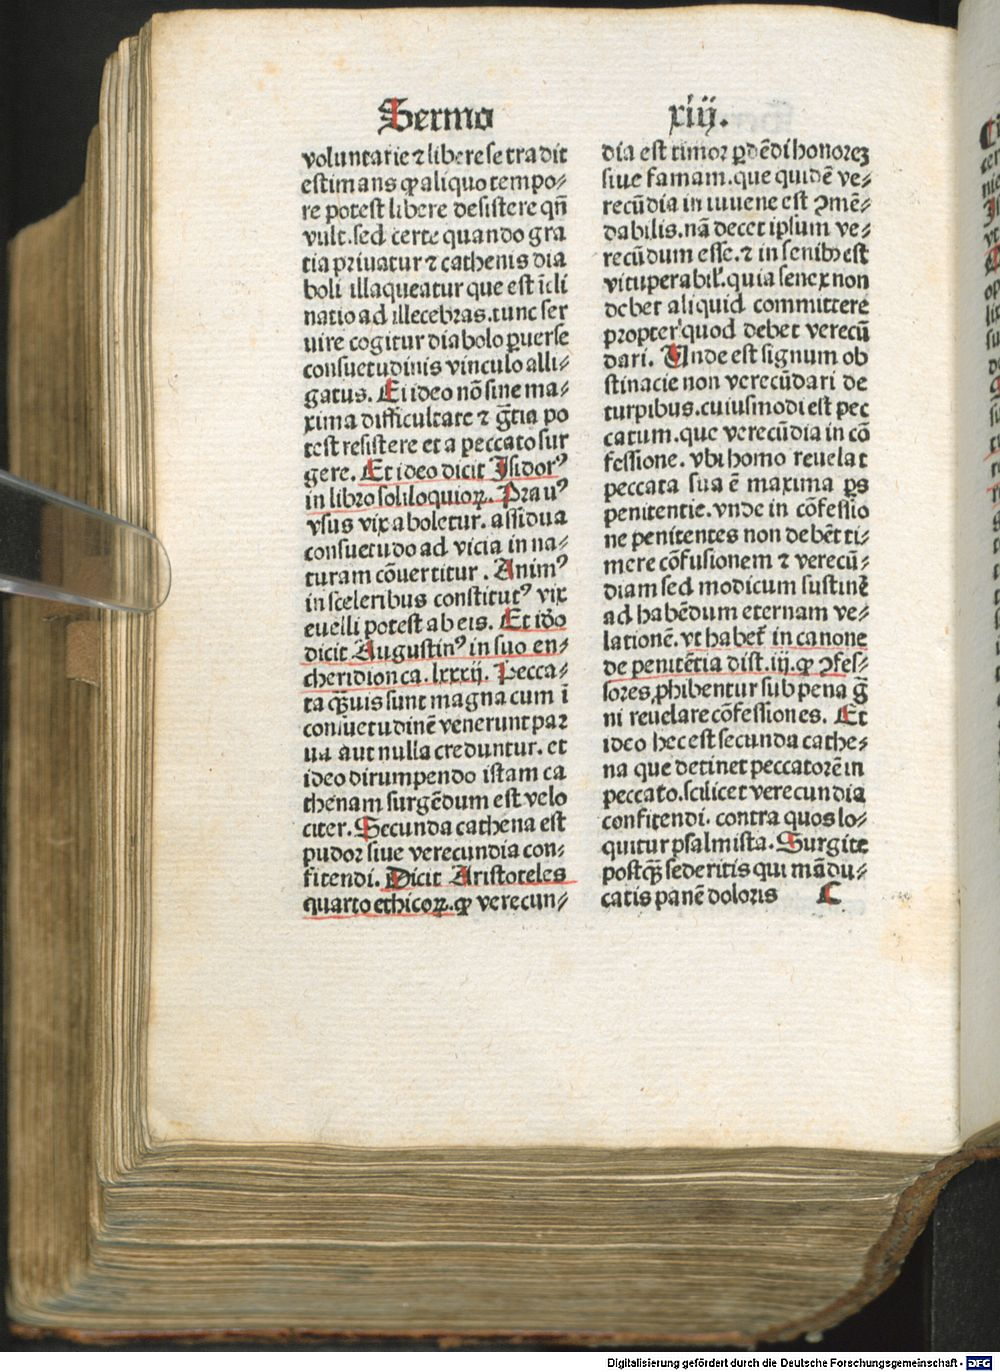 Sermo
xiij.
voluntarie ⁊ libere se tradit
estimans ꝙ aliquo tempo⸗
re potest libere desistere qñ
vult. sed certe quando gra
tia priuatur ⁊ cathenis dia
boli illaqueatur que est ĩcli
natio ad illecebras. tunc ser
uire cogitur diabolo ꝑuerse
consuetudinis vinculo alli⸗
gatus. Et ideo nõ sine ma⸗
xima difficultate ⁊ g̃tia po
test resistere et a peccato sur
gere. Et ideo dicit Isidorꝰ
in libro soliloquioꝝ. Prauꝰ
vsus vix aboletur. assidua
consuetudo ad vicia in na⸗
turam cõuertitur. Animꝰ
in sceleribus constitutꝰ vix
euelli potest ab eis. Et iđo
dicit Augustinꝰ in suo en⸗
cheridion ca. lxxxij. Pecca⸗
ta q̃uis sunt magna cum ĩ
consuetudinẽ venerunt par
ua aut nulla creduntur. et
ideo dirumpendo istam ca
thenam surgẽdum est velo
citer. Secunda cathena est
pudor siue verecundia con⸗
fitendi. Dicit Aristoteles
quarto ethicoꝝ. ꝙ verecun⸗
dia est timor ꝑdẽdi honoreꝫ
siue famam. que quidẽ ve⸗
recũdia in iuuene est ꝯmẽ⸗
dabilis. nã decet ipsum ve⸗
recũdum esse. ⁊ in senibꝰ est
vituperabil'. quia senex non
debet aliquid committere
propter quod debet verecũ
dari. Unde est signum ob
stinacie non verecũdari de
turpibus. cuiusmodi est pec
catum. que verecũdia in cõ
fessione. vbi homo reuelat
peccata sua ẽ maxima ꝑs
penitentie. vnde in cõfessio
ne penitentes non debẽt ti⸗
mere cõfusionem ⁊ verecũ⸗
diam sed modicum sustinẽ
ad habẽdum eternam ve⸗
lationẽ. vt habet᷑ in canone
de penitẽtia dist. iij. ꝙ ꝯfes⸗
sores ꝓhibentur sub pena g̃
ni reuelare cõfessiones. Et
ideo hec est secunda cathe⸗
na que detinet peccatorẽ in
peccato. scilicet verecundia
confitendi. contra quos lo⸗
quitur psalmista. Surgite
postq̃ sederitis qui mãdu⸗
catis panẽ doloris C
Digitalisierung gefördert durch die Deutsche Forschungsgemeinschaft - DFG